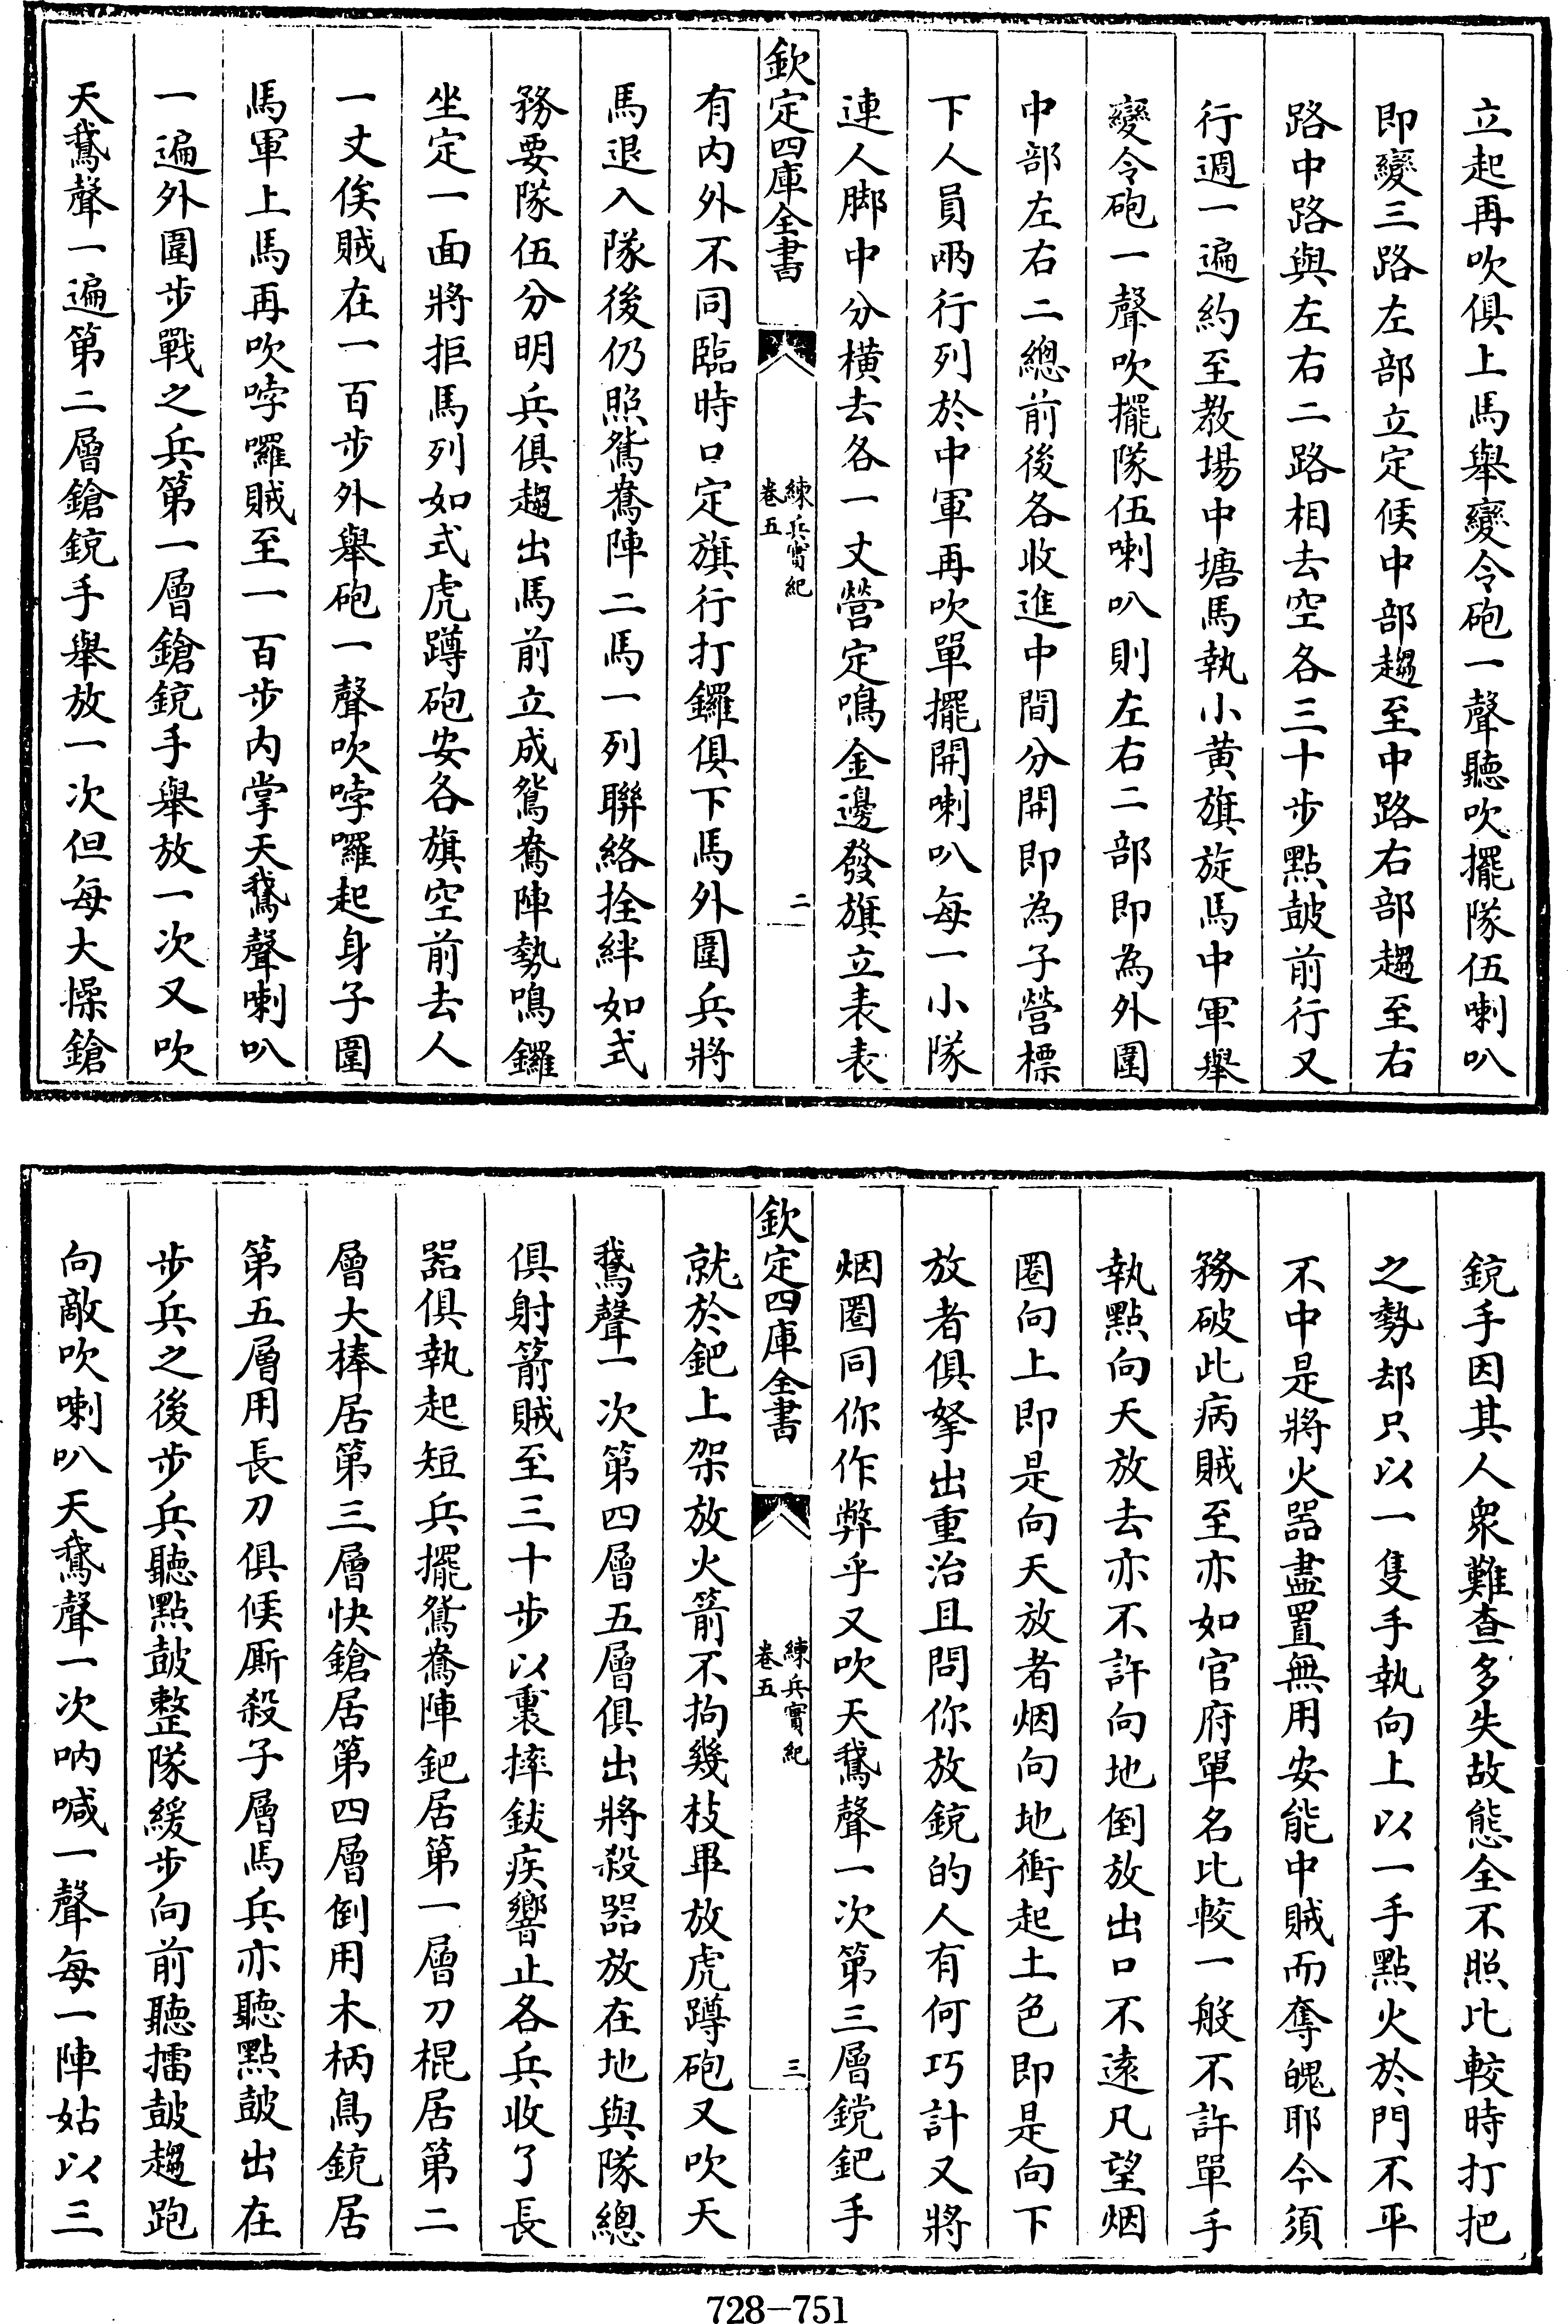 立起再吹俱上馬舉變令砲一聲聽吹擺隊伍喇叭
即變三路左部立定候中部趨至中路右部趨至右
路中路與左右二路相去空各三十步點鼓前行又
行週一遍約至教場中塘馬執小黄旗旋馬中軍舉
變令砲一聲吹擺隊伍喇叭則左右二部即為外圍
中部左右二總前後各收進中間分開即為子營標
下人員兩行列於中軍再吹單擺開喇叭每一小隊
連人脚中分横去各一丈營定鳴金邊發旗立表表
欽定四庫全書
練兵實紀
卷五
二
有内外不同臨時口定旗行打鑼俱下馬外圍兵將
馬退入隊後仍照鴛鴦陣二馬一列聯絡拴絆如式
務要隊伍分明兵俱趨出馬前立成鴛鴦陣勢鳴鑼
坐定一面將拒馬列如式虎蹲砲安各旗空前去人
一丈俟賊在一百步外舉砲一聲吹哱囉起身子圍
馬軍上馬再吹哱囉賊至一百步内掌天鵝聲喇叭
一遍外圍步戰之兵第一層鎗銃手舉放一次又吹
天鵝聲一遍第二層鎗銃手舉放一次但每大操鎗
銃手因其人衆難查多失故態全不照比較時打把
之勢却只以一隻手執向上以一手點火於門不平
不中是將火器盡置無用安能中賊而奪魄耶今須
務破此病賊至亦如官府單名比較一般不許單手
執點向天放去亦不許向地倒放出口不遠凡望烟
圈向上即是向天放者烟向地衝起土色即是向下
放者俱拏出重治且問你放銃的人有何巧計又將
烟圈同你作弊乎又吹天鵝聲一次第三層鎲鈀手
欽定四庫全書
練兵實紀
卷五
三
就於鈀上架放火箭不拘幾枝畢放虎蹲砲又吹天
鵝聲一次第四層五層俱出將殺器放在地與隊總
俱射箭賊至三十步以裏摔鈸疾響止各兵收了長
器俱執起短兵擺鴛鴦陣鈀居第一層刀棍居第二
層大棒居第三層快鎗居第四層倒用木柄鳥銃居
第五層用長刀俱候厮殺子層馬兵亦聽點鼓出在
步兵之後步兵聽點鼓整隊緩步向前聽擂鼓趨跑
向敵吹喇叭天鵝聲一次吶喊一聲每一陣姑以三
728-751